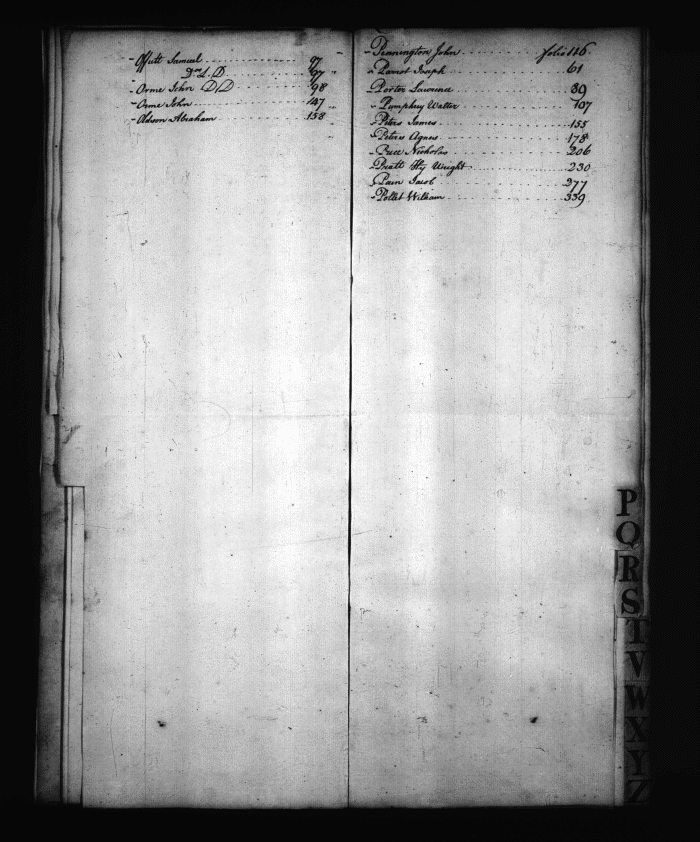 Offutt Samuel 97
Do. L. D. 97
Orme John DD 98
Orme John 147
Oldson Abraham 158
Pennington John folio 116
Parrot Joseph 61
Porter Lawrence 89
Pumphry Walter 107
Peters James 155
Peters Agnes 178
Price Nicholas 206
Pratt Hy Wright 230
Pain Jacob 277
Pollet William 339
P
Q
R
S
T
V
W
X
Y
Z